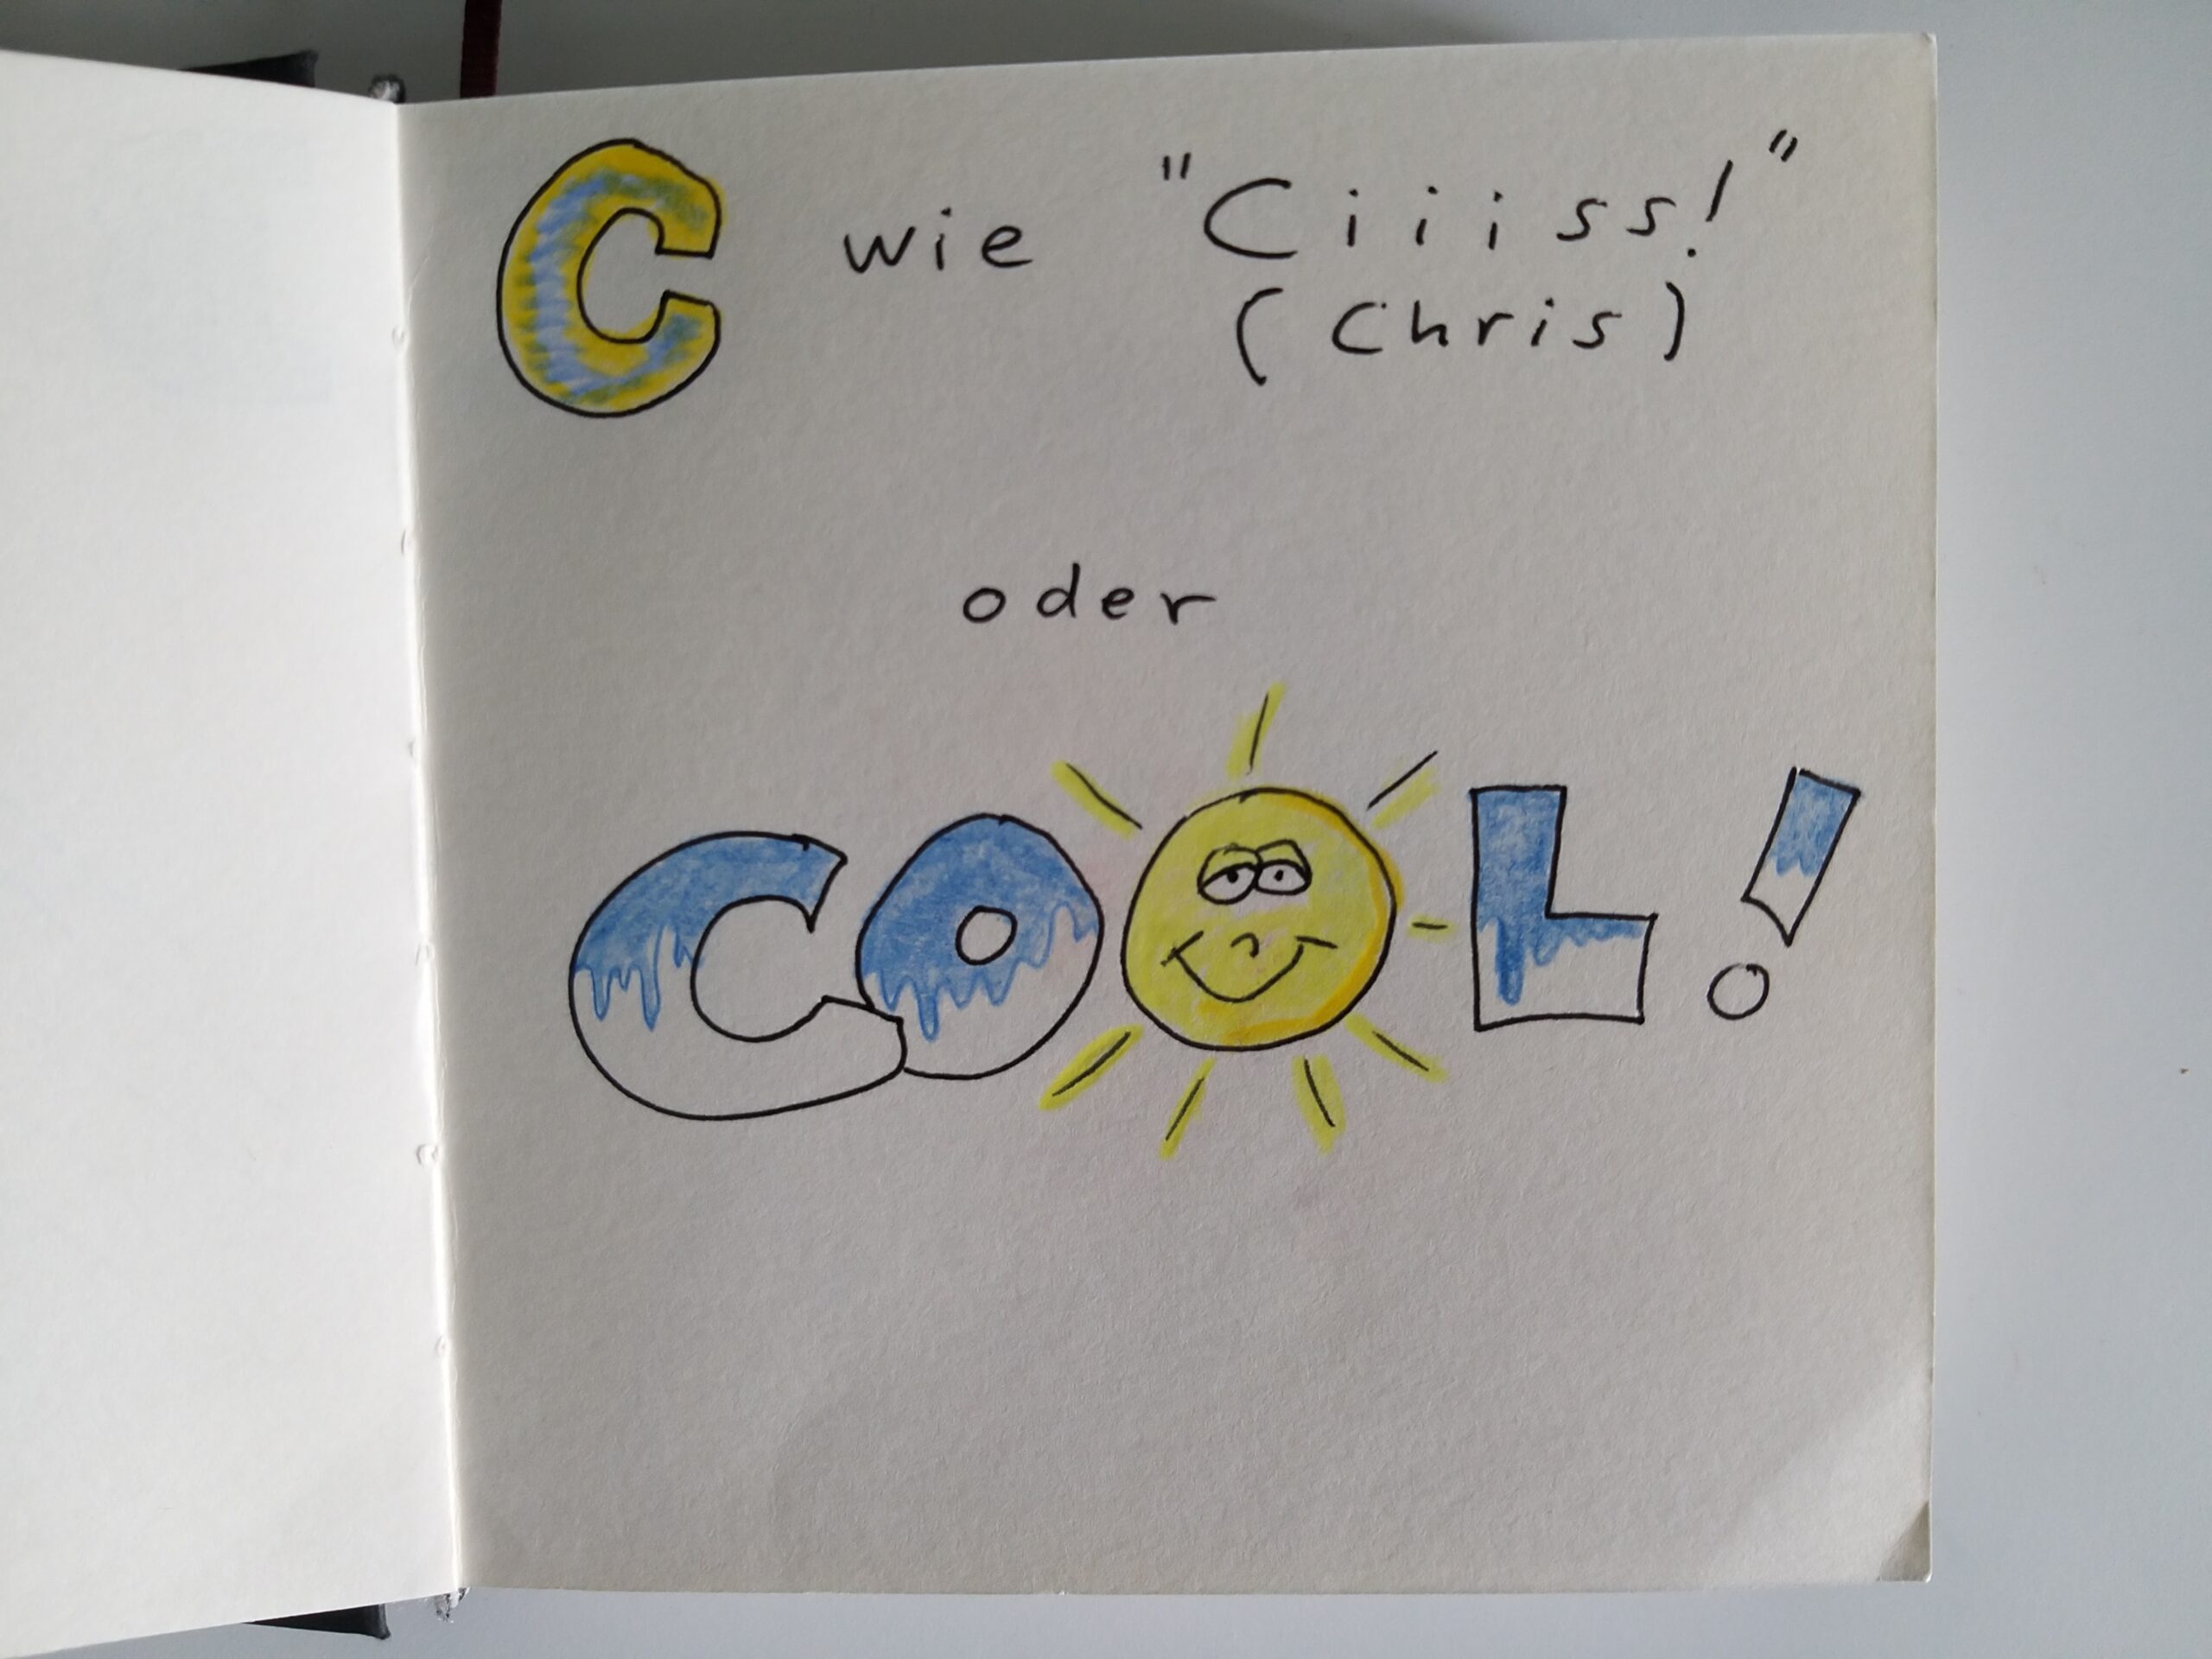 C wie "Ciiiss!"
(Chris)
oder
COOL!